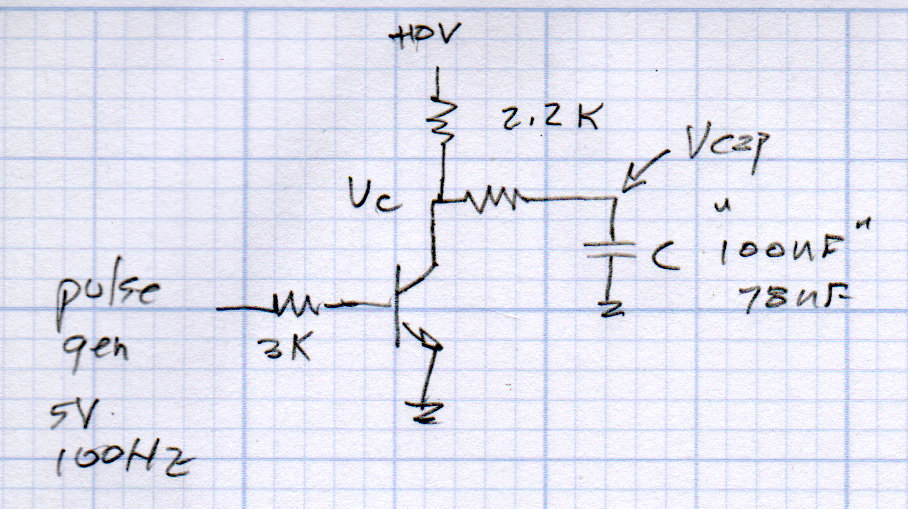 +10V
2.2K
Vcap
Vc
"100nF"
C
78nF
pulse
gen
3K
5V
100HZ